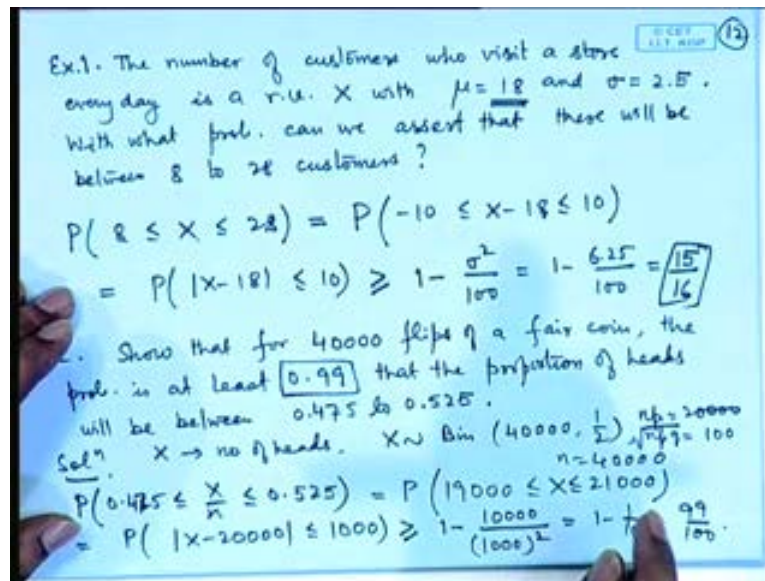 © CET
I.I.T. KGP
12
Ex.1. The number of customers who visit a store
every day is a r.u. X with μ = 18 and σ = 2.5.
With what prob. can we assert that there will be
between 8 to 28 customers?
P( 8 ≤ X ≤ 28) = P(-10 ≤ X-18 ≤ 10)
= P( |X-18| ≤ 10) ≥ 1- σ²/100 = 1- 6.25/100 = 15/16
. Show that for 40000 flips of a fair coin, the
prob. is at least 0.99 that the proportion of heads
will be between 0.475 to 0.525.
Solⁿ. X → no of heads. X ~ Bin (40000, 1/2) np = 20000
√npq = 100
n = 40000
P(0.475 ≤ X/n ≤ 0.525) = P (19000 ≤ X ≤ 21000)
= P( |X-20000| ≤ 1000) ≥ 1- 10000/(1000)² = 1- 99/100.